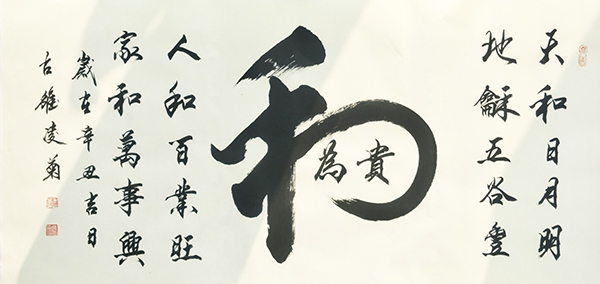 天和日月明
地龢五谷豐
和
為貴
人和百業旺
家和萬事興
歲在辛丑吉日
古雒凌菊